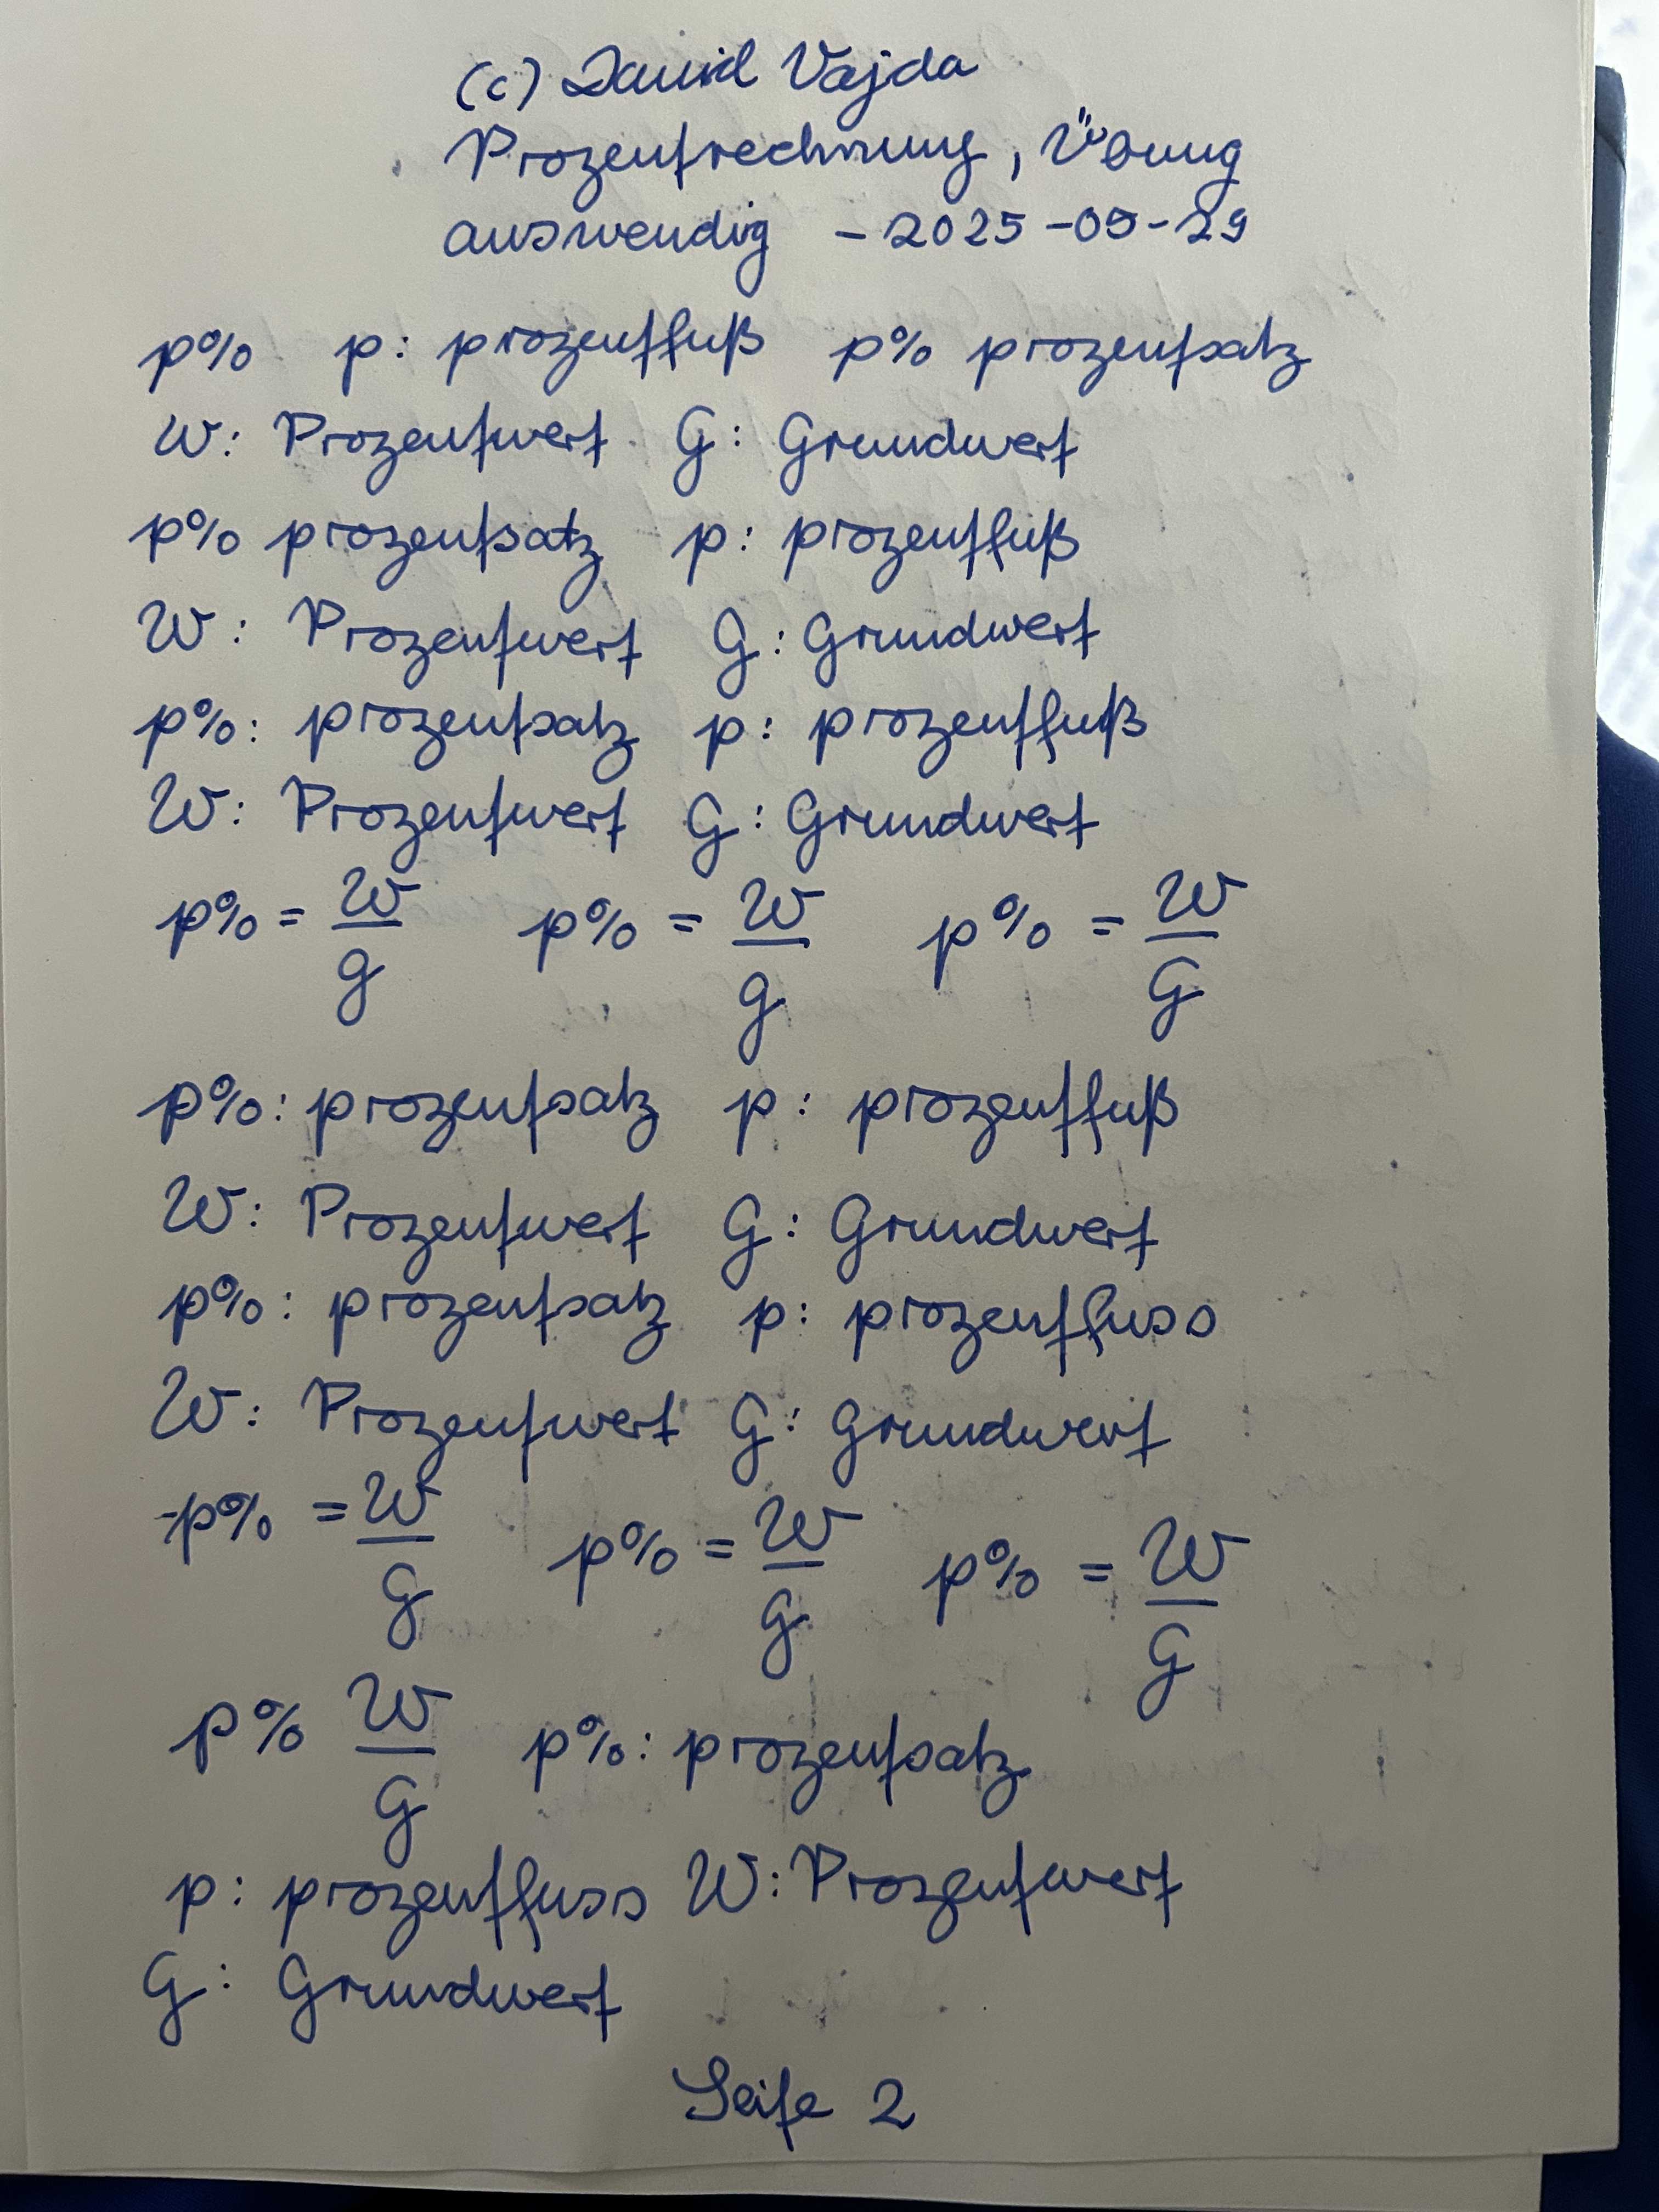 (c) David Vajda
Prozentrechnung, Übung
auswendig - 2025-09-29
p% p: prozentfuß p% prozentsatz
W: Prozentwert G: Grundwert
p% prozentsatz p: prozentfuß
W: Prozentwert G: Grundwert
p%: prozentsatz p: prozentfuß
W: Prozentwert G: Grundwert
p% = W/g p% = W/g p% = W/G
p%: prozentsatz p: prozentfuß
W: Prozentwert G: Grundwert
p%: prozentsatz p: prozentfuss
W: Prozentwert G: Grundwert
p% = W/G p% = W/G p% = W/G
p% W/G p%: prozentsatz
p: prozentfuss W: Prozentwert
G: Grundwert
Seite 2